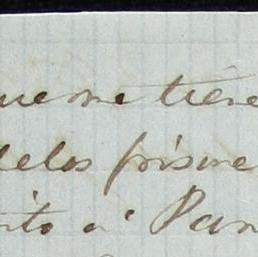 ue me tiene
delos prisione
ito a' Pan